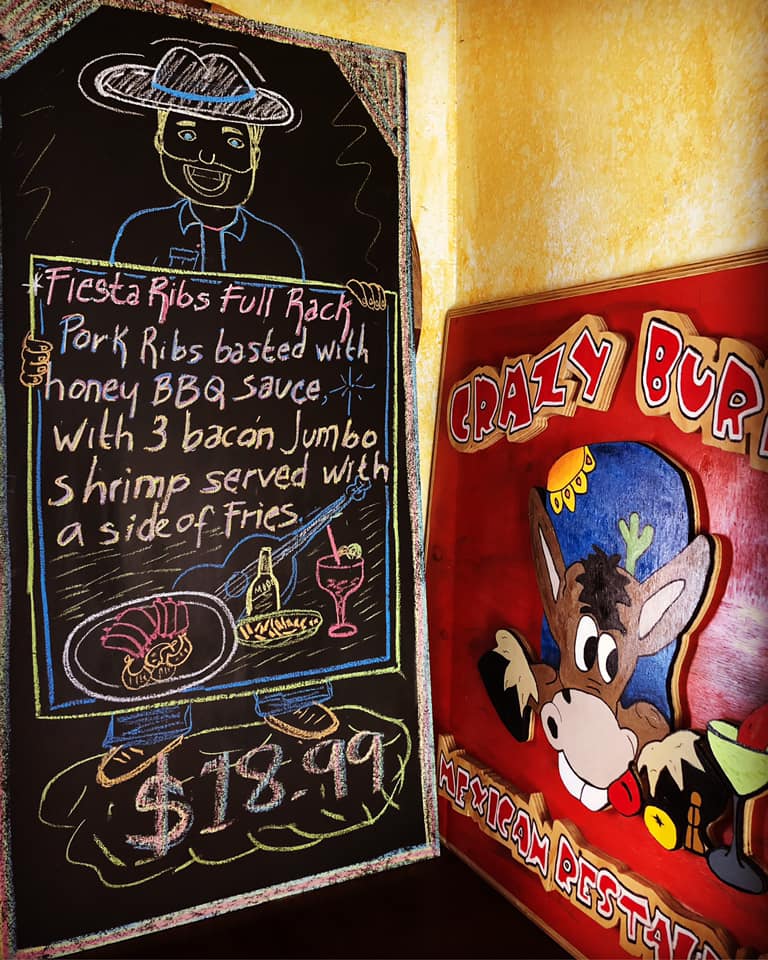 *Fiesta Ribs Full Rack
Pork Ribs basted with
honey BBQ Sauce,
with 3 bacon Jumbo
shrimp served with
a side of Fries.
$18.99
CRAZY BUR
MEXICAN RESTAU